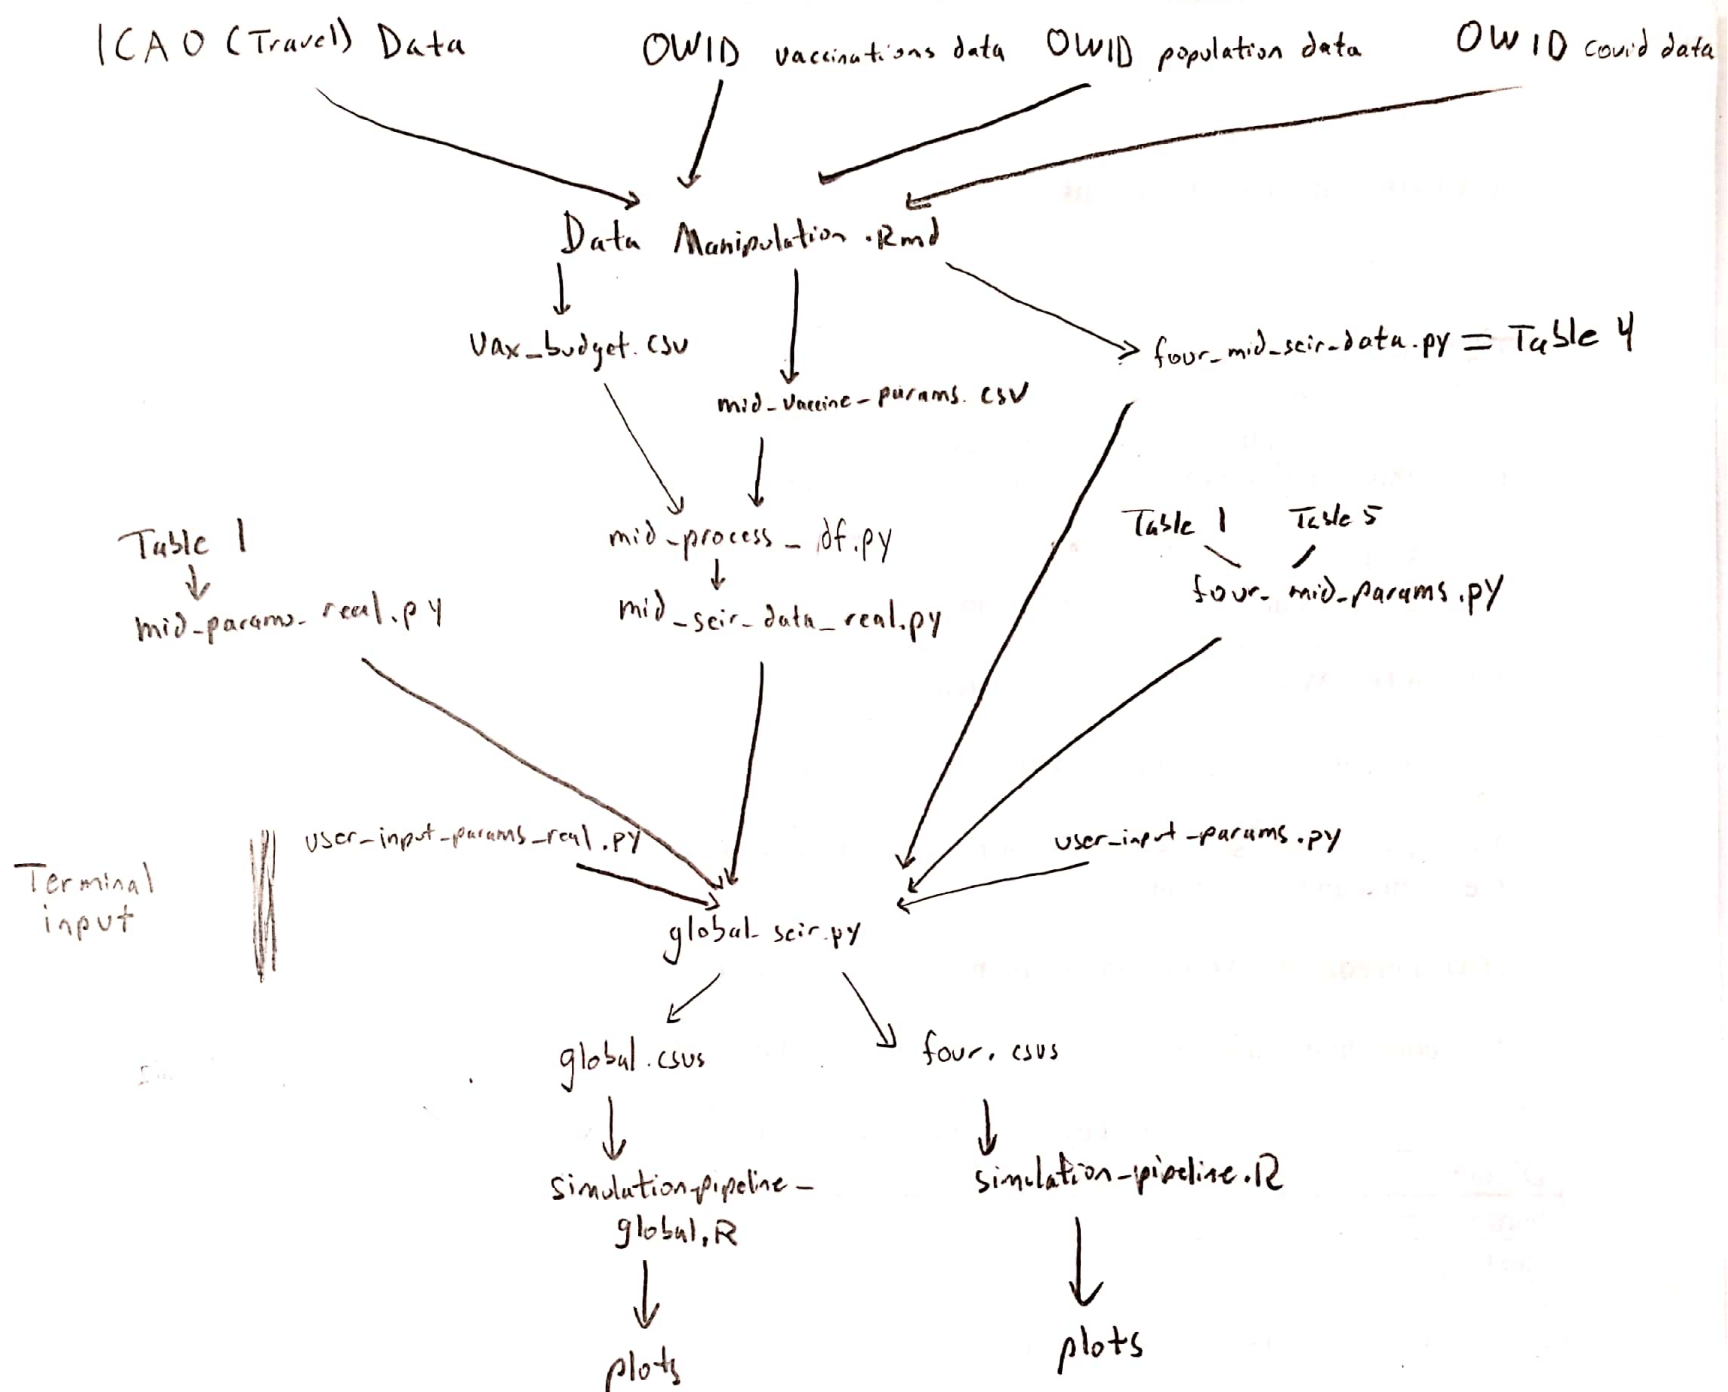 ICAO (Travel) Data
OWID vaccinations data
OWID population data
OWID covid data
Data Manipulation.Rmd
vax_budget.csv
mid_vaccine_params.csv
four_mid_seir_data.py = Table 4
Table 1
mid_params_real.py
mid_process_df.py
mid_seir_data_real.py
Table 1
Table 5
four_mid_params.py
Terminal
input
user_input_params_real.py
user_input_params.py
global_seir.py
global.csvs
four.csvs
simulation_pipeline_
global.R
simulation_pipeline.R
plots
plots